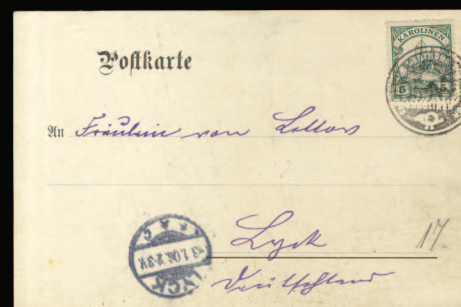 Postkarte
KAROLINEN
5 5
An Fräulein von Lottow
Lyck
17.
Deutschland
LYCK